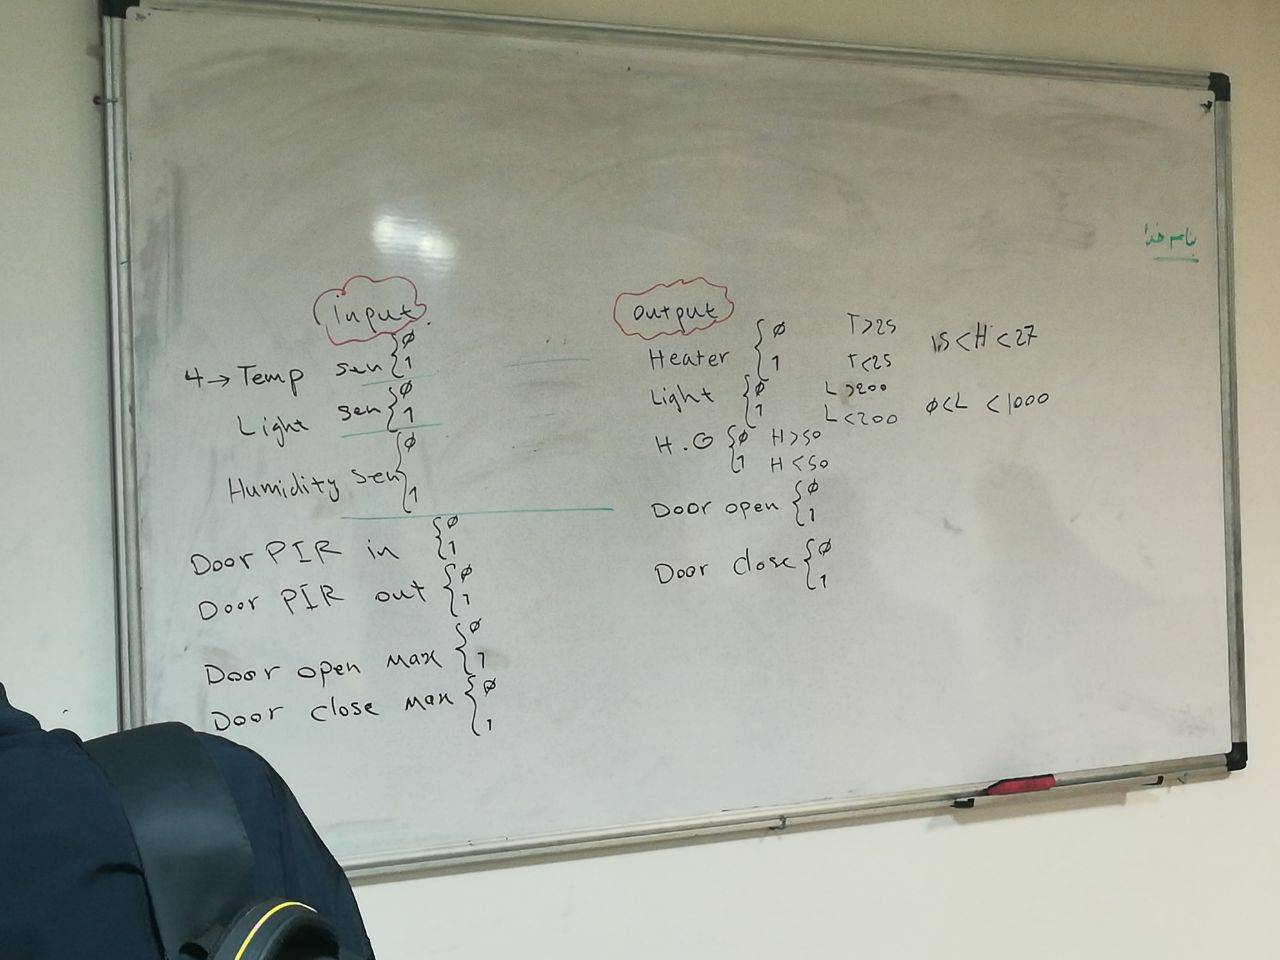 بنام خدا
input
4 → Temp sen { ϕ
1
Light sen { ϕ
1
Humidity sen { ϕ
1
Door PIR in { ϕ
1
Door PIR out { ϕ
1
Door open max { ϕ
1
Door close max { ϕ
1
output
Heater { ϕ T>25
1 T<25
15<H<27
Light { ϕ L>200
1 L<200
ϕ<L<1000
H.G { ϕ H>50
1 H<50
Door open { ϕ
1
Door close { ϕ
1